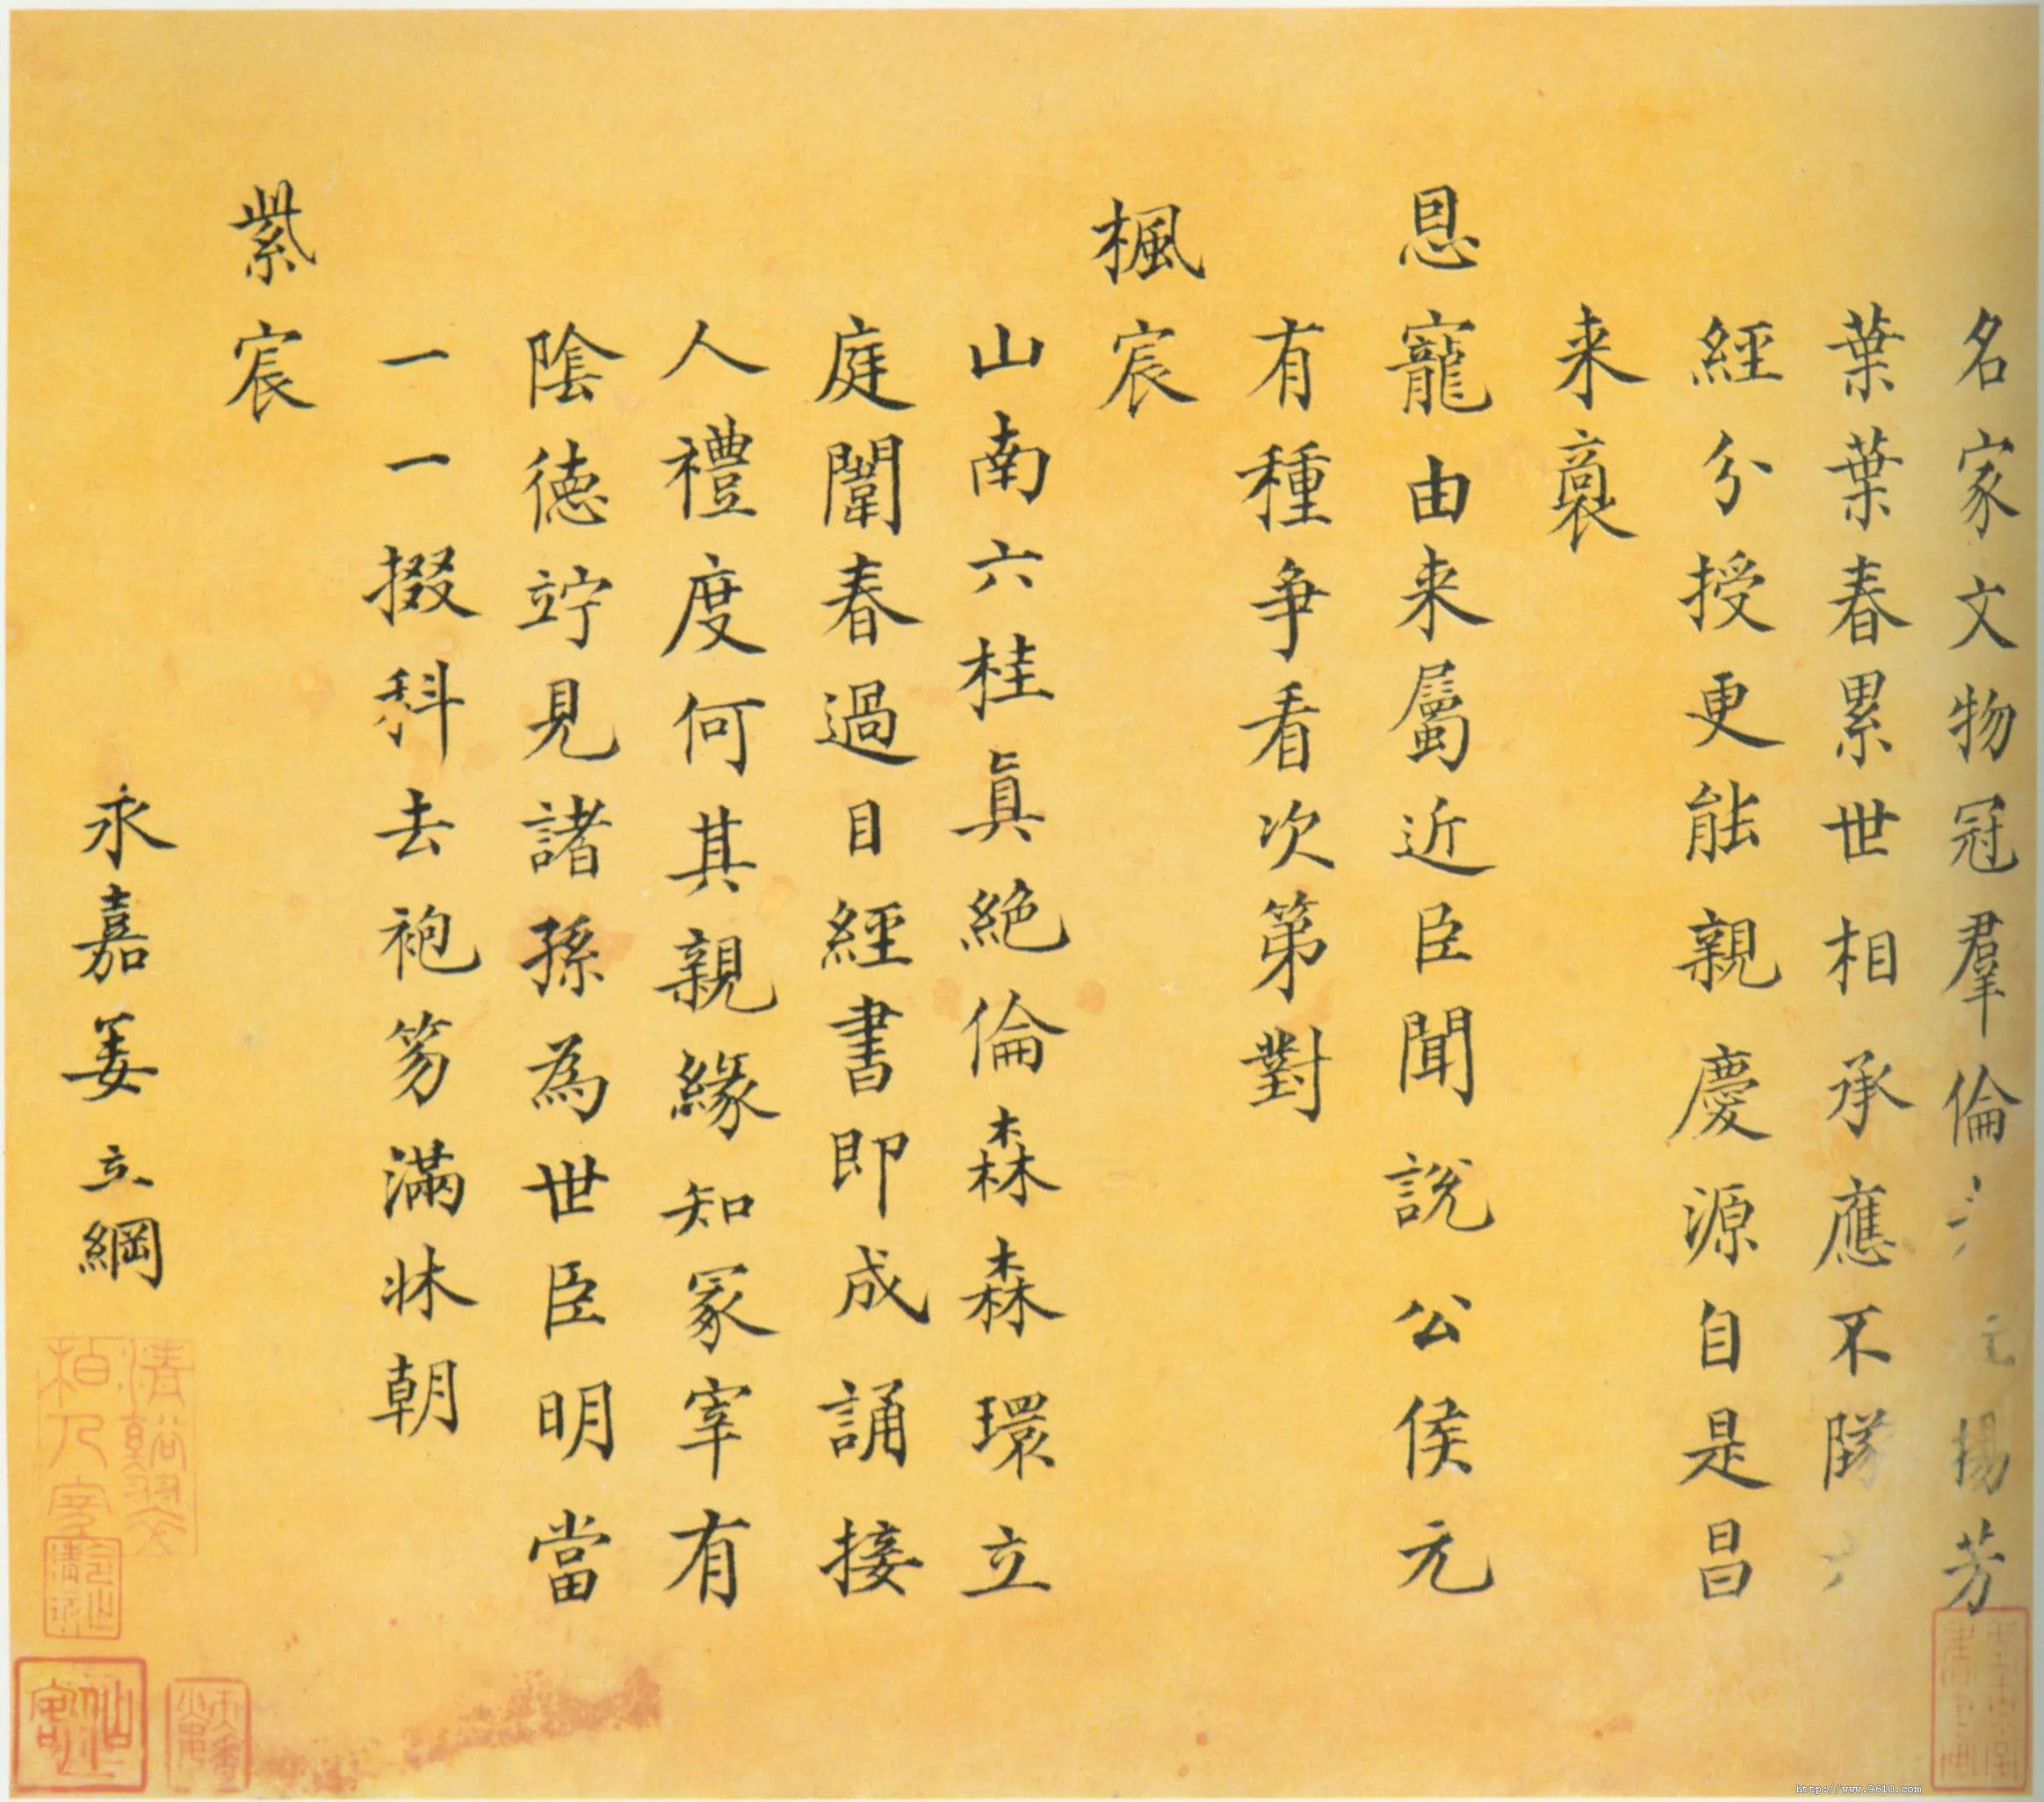 名家文物冠羣倫 揚芳
葉葉春累世相承應不墜
經分授更能親慶源自是昌
来裔
恩寵由来屬近臣聞說公侯元
有種争看次第對
楓宸
山南六桂眞絶倫森森環立
庭闈春過目經書即成誦接
人禮度何其親緣知冢宰有
陰德竚見諸孫為世臣明當
一一掇科去袍笏滿牀朝
紫宸
永嘉姜立綱
http://www.9610.com